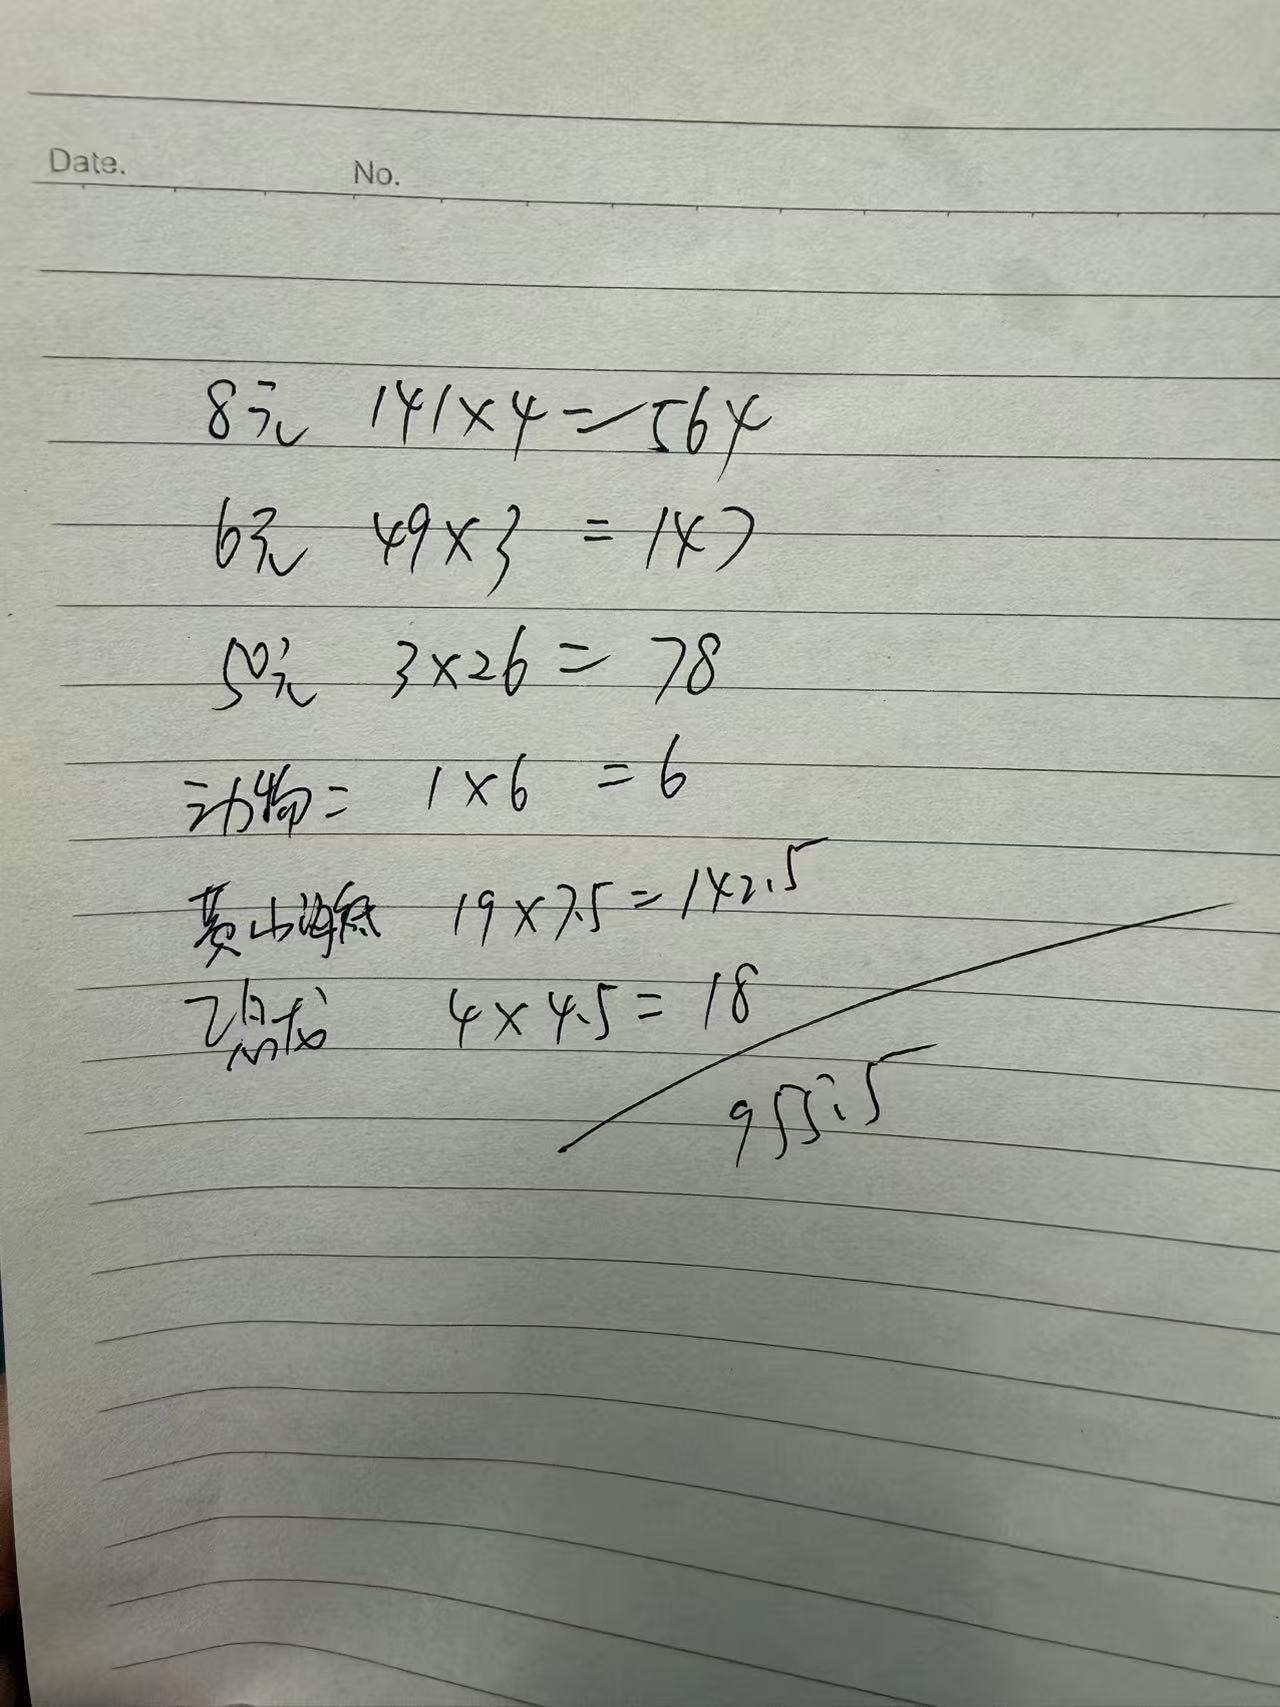 Date. No.
8元 141×4=564
6元 49×3 =147
50元 3×26= 78
动物= 1×6 =6
黄山海底 19×7.5=142.5
4×4.5=18
955.5